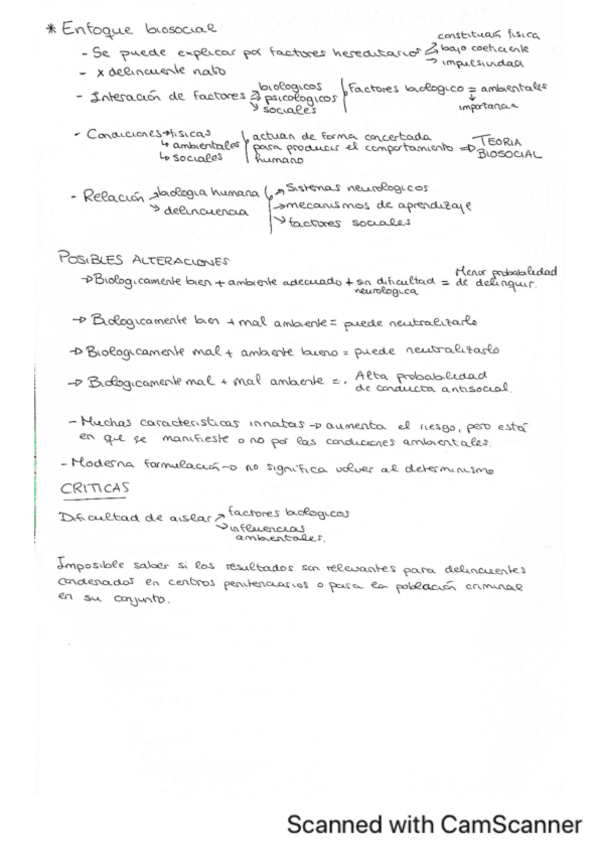 * Enfoque biosocial
- Se puede explicar por factores hereditarios → constitución física
→ bajo coeficiente
→ impulsividad
- x delincuente nato
- Interación de factores → biologicos
→ psicologicos
→ sociales
Factores biologico = ambientales
↓
importancia
- Condiciones → fisicas
↳ ambientales
↳ sociales
actuan de forma concertada
para producir el comportamiento ⇒ TEORIA
humano
BIOSOCIAL
- Relación → biologia humana
→ delincuencia
→ Sistemas neurologicos
→ mecanismos de aprendizaje
→ factores sociales
POSIBLES ALTERACIONES
→ Biologicamente bien + ambiente adecuado + sin dificultad = Menor probabilidad
neurologica
de delinquir.
→ Biologicamente bien + mal ambiente = puede neutralizarlo
→ Biologicamente mal + ambiente bueno = puede neutralizarlo
→ Biologicamente mal + mal ambiente =. Alta probabilidad
de conducta antisocial.
- Muchas caracteristicas innatas → aumenta el riesgo, pero está
en que se manifieste o no por las condiciones ambientales.
- Moderna formulación → no significa volver al determinismo
CRITICAS
Dificultad de aislar → factores biologicos
→ influencias
ambientales.
Imposible saber si los resultados son relevantes para delincuentes
condenados en centros penitenciarios o para la población criminal
en su conjunto.
Scanned with CamScanner